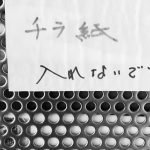 チラ紙
入れないで